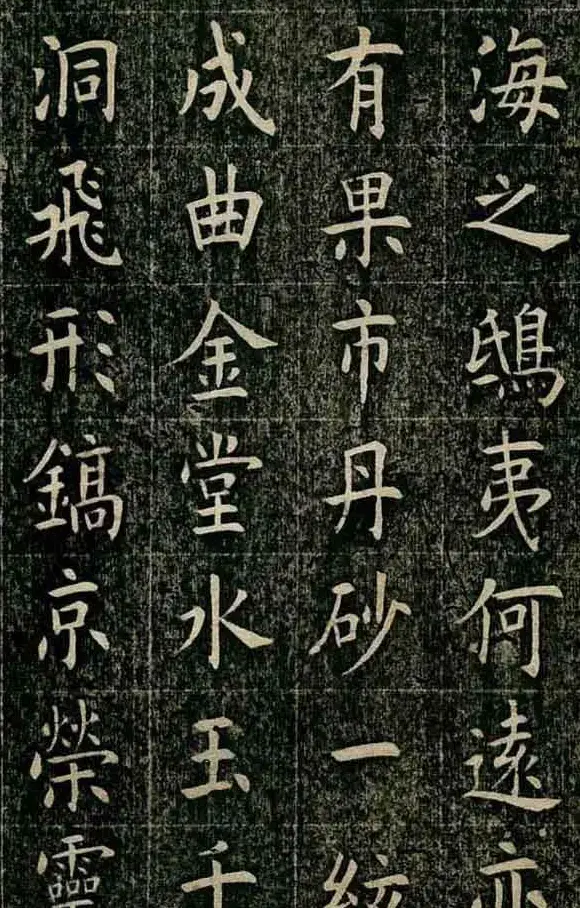 海之鴟夷何遠亦
有果市丹砂一
成曲金堂水玉千
洞飛形鎬京榮靈